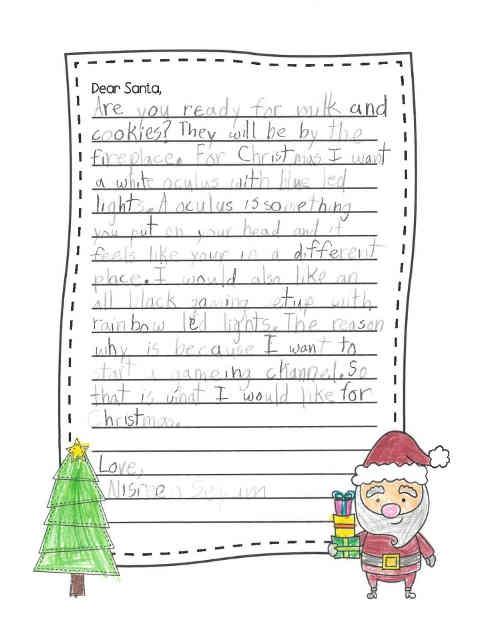 Dear Santa,
Are you ready for milk and
cookies? They will be by the
fireplace. For Christmas I want
a white oculus with blue led
lights. A oculus is something
you put on your head and it
feels like your in a different
place. I would also like an
all black gaming etup with
rainbow led lights. The reason
why is because I want to
start a gameing channel. So
that is what I would like for
Christmas.
Love,